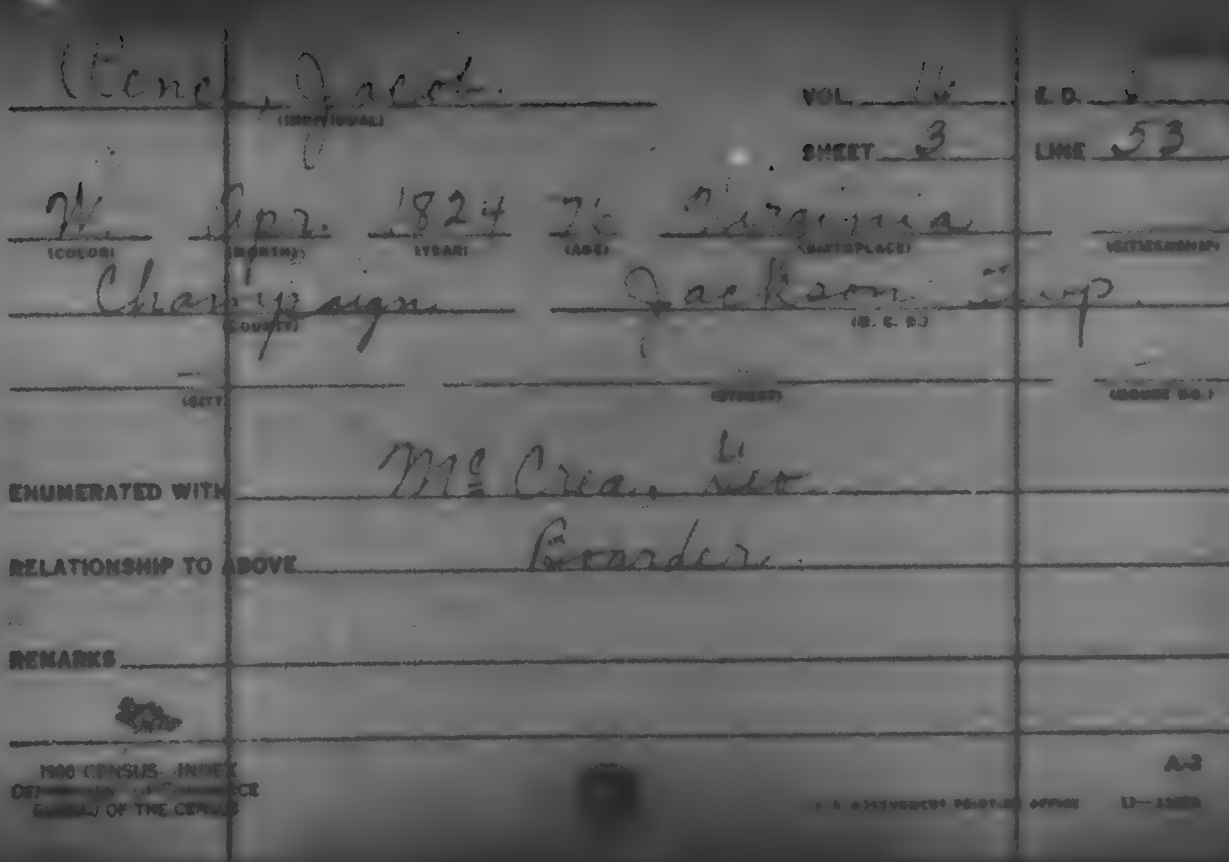 Jacob. VOL. 16 E.D.
(INDIVIDUAL)
SHEET 3 LINE 53
W. Apr. 1824 76 Virginia
(COLOR) (MONTH) (YEAR) (AGE) (BIRTHPLACE) (CITIZENSHIP)
Champaign Jackson Twp.
(COUNTY) (M. C. D.)
(CITY) (STREET) (HOUSE NO.)
ENUMERATED WITH Mc Crea, Geo
RELATIONSHIP TO ABOVE Boarder.
REMARKS
1900 CENSUS-INDEX A-2
DEPARTMENT OF COMMERCE
BUREAU OF THE CENSUS U.S. GOVERNMENT PRINTING OFFICE